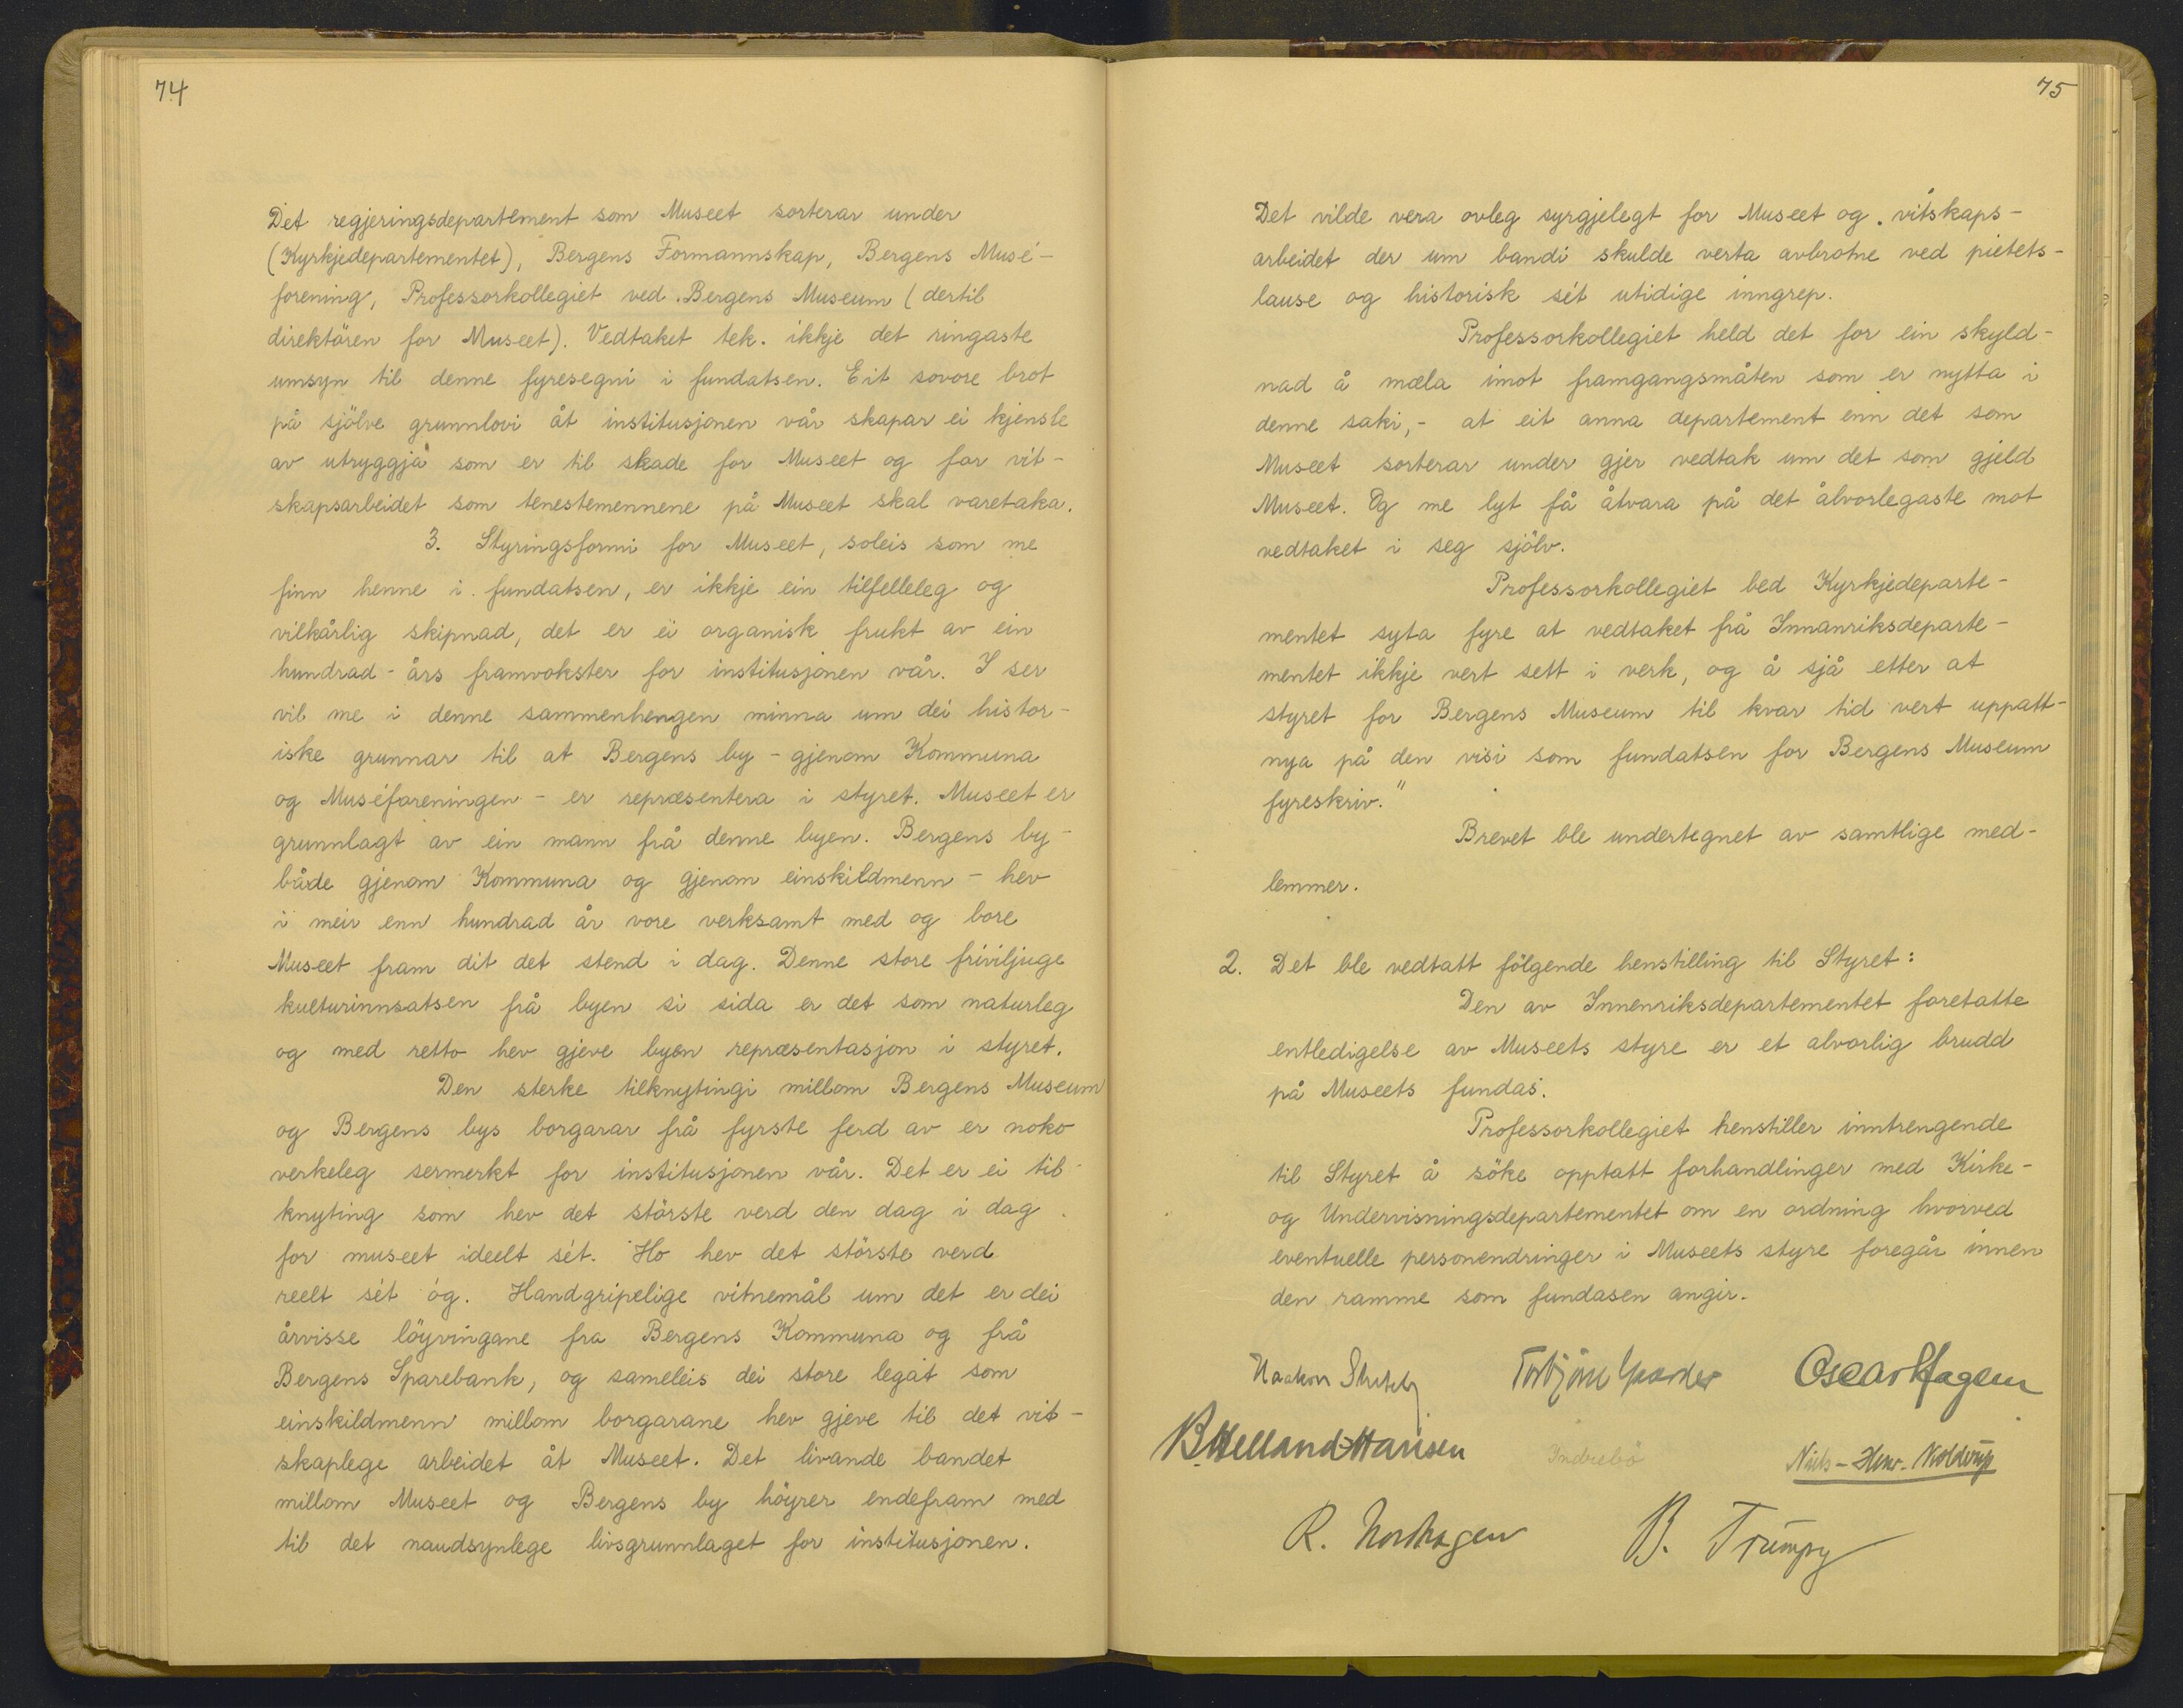 74
Det regjeringsdepartement som Museet sorterar under
(Kyrkjedepartementet), Bergens Formannskap, Bergens Musé-
forening, Professorkollegiet ved Bergens Museum (dertil
direktören for Museet). Vedtaket tek ikkje det ringaste
umsyn til denne fyresegni i fundatsen. Eit sovore brot
på sjölve grunnlovi åt institusjonen vår skapar ei kjensle
av utryggja som er til skade for Museet og for vit-
skapsarbeidet som tenestemennene på Museet skal varetaka.
3. Styringsformi for Museet, soleis som me
finn henne i fundatsen, er ikkje ein tilfelleleg og
vilkårlig skipnad, det er ei organisk frukt av ein
hundrad-års framvokster for institusjonen vår. I ser
vil me i denne sammenhengen minna um dei histor-
iske grunnar til at Bergens by - gjenom Kommuna
og Muséforeningen - er repræsentera i styret. Museet er
grunnlagt av ein mann frå denne byen. Bergens by -
både gjenom Kommuna og gjenom einskildmenn - hev
i meir enn hundrad år vore verksamt med og bore
Museet fram dit det stend i dag. Denne store friviljuge
kulturinnsatsen frå byen si sida er det som naturleg
og med retto hev gjeve byen repræsentasjon i styret.
Den sterke tilknytingi millom Bergens Museum
og Bergens bys borgarar frå fyrste ferd av er noko
verkeleg sermerkt for institusjonen vår. Det er ei til-
knyting som hev det störste verd den dag i dag
for museet ideelt sét. Ho hev det störste verd
reelt sét óg. Handgripelige vitnemål um det er dei
årvisse löyvingane fra Bergens Kommuna og frå
Bergens Sparebank, og sameleis dei store legat som
einskildmenn millom borgarane hev gjeve til det vit-
skaplege arbeidet åt Museet. Det livande bandet
millom Museet og Bergens by höyrer endefram med
til det naudsynlege livsgrunnlaget for institusjonen.
75
Det vilde vera ovleg syrgjelegt for Museet og vitskaps-
arbeidet der um bandi skulde verta avbrotne ved pietets-
lause og historisk sét utidige inngrep.
Professorkollegiet held det for ein skyld-
nad å mæla imot framgangsmåten som er nytta i
denne saki, - at eit anna departement enn det som
Museet sorterar under gjer vedtak um det som gjeld
Museet. Og me lyt få åtvara på det ålvorlegaste mot
vedtaket i seg sjölv.
Professorkollegiet bed Kyrkjedeparte-
mentet syta fyre at vedtaket frå Innanriksdeparte-
mentet ikkje vert sett i verk, og å sjå etter at
styret for Bergens Museum til kvar tid vert uppatt-
nya på den visi som fundatsen for Bergens Museum
fyreskriv."
Brevet ble undertegnet av samtlige med-
lemmer.
2. Det ble vedtatt fölgende henstilling til Styret:
Den av Innenriksdepartementet foretatte
entledigelse av Museets styre er et alvorlig brudd
på Museets fundas.
Professorkollegiet henstiller inntrengende
til Styret å söke opptatt forhandlinger med Kirke-
og Undervisningsdepartementet om en ordning hvorved
eventuelle personendringer i Museets styre foregår innen
den ramme som fundasen angir.
Haakon Shetelig Torbjörn Gaarder Oscar Hagem
B. Helland-Hansen Indrebö Niels-Henr. Kolderup
R. Nordhagen B. Trumpy